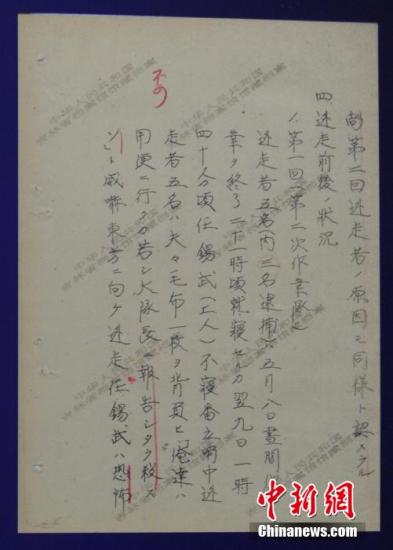 尚第二回逃走者ノ原因モ同様ト認メラル
四、逃走前後ノ状況
1、第一回(第二次作業隊)
逃走者五名(内三名逮捕)ハ五月八日昼間作
業ヲ終了二十一時頃就寝セルカ翌九日一時
四十分頃任錫武(工人)不寝番立哨中逃
走者五名ハ夫々毛布一枚ヲ背負ヒ俺達ハ
用便ニ行クカ若シ大隊長ニ報告シタラ殺ス
ゾト威嚇東方ニ向ケ逃走任錫武ハ恐怖
中华人民共和国
吉林省档案馆馆藏档案
中新網
Chinanews.com